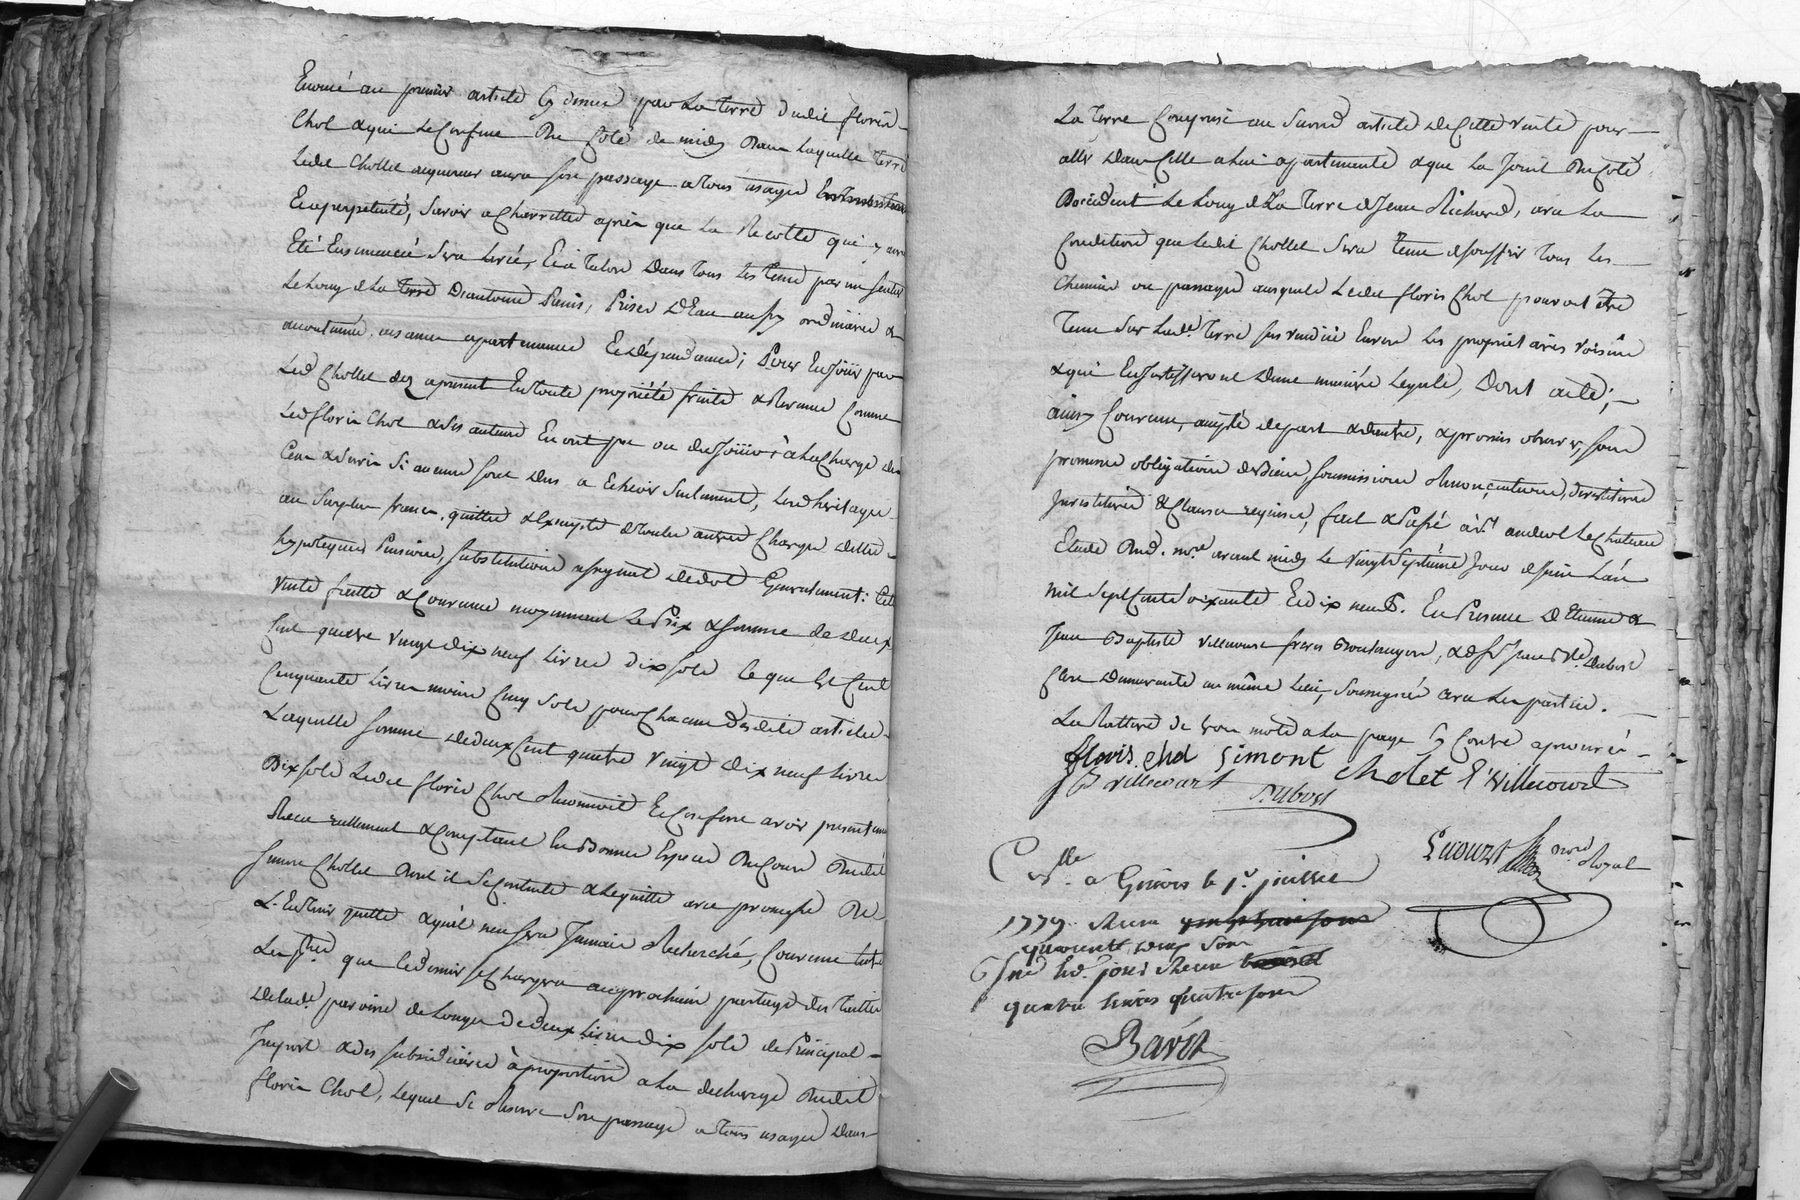 Enoncé au premier article cy dessus par La terre dudit floris
Chol & qui Le Confine Du Coté de midy Dans Laquelle terre
Ledit Chollet acquereur aura son passage a tous usages
Et a perpetuité, Savoir a Charrettes après que La Recolte qui y aura
Eté Ensemencée Sera Levée, Et a talon Dans tous les tems par un sentier
Le Long de La terre D'antoine Simis, Prises D'Eau aussy ordinaires &
accoutumés, aisances apartenances Et Dépendances; Pour En Joüir par
Led. Chollet dez apresent En toute propriété fruits & Revenus Comme
Led. floris Chol & Ses auteurs En ont pu ou du Joüir; à La Charge des
Cens & Servis Si aucuns sont Dus a Echeoir Seulement, Lesd heritages
au Surplus francs, quittes & Exempts de toutes autres Charges dettes
hypoteques Pensions, substitutions assignat de dot Generalement: Cette
vente faitte & Convenue moyennant Le Prix & somme de Deux
Cent quatre vingt dix neuf Livres dix sols Ce que Est Cent
Cinquante Livres moins Cinq Sols pour Chacun Desdits articles
Laquelle somme de deux Cent quatre vingt dix neuf Livres
Dix sols Ledit floris Chol Reconnoit Et Confesse avoir presentement
Reçu reellement & Comptant En Bonnes Especes De Cours Dudit
Simon Chollet Dont il Se Contente & Le quitte avec promesse De
L'En tenir quitte & qu'il n'en sera Jamais Recherché, Convenu Entre
Les pties que Le dernier se Chargera au prochain partage des tailles
De Lad. paroisse de Longes de deux Livres dix sols de Principal
Impot & des subsidiaires à proportion a La decharge Dudit
floris Chol, Lequel Se Reserve Son passage a tous usages Dans
La terre Comprise au Second article de Cette vente pour
aller Dans Celle a Lui apartenante & que La Joint Du Coté
D'occident Le Long de La terre de Jean Richard, avec La
Condition que Ledit Chollet Sera tenu de souffrir tous Les
Chemins ou passages auxquels Ledit floris Chol pouroit être
tenu Sur Lade. terre sus vendüe Envers Les proprietaires voisins
& qui En Justifieront D'une maniere Legale, Dont acte;
ainsy Convenu, accepté de part & d'autre, & promis observer, sous
promesse obligations de Biens soumissions Renonciations, devestitures
Investitures & Clauses requises, fait & Passé à St andeol Le Château
Etude Dud. nore avant midy Le vingt Septième Jour de Juin L'an
mil Sept Cent soixante Et dix neuf. En Presence D'Etienne &
Jean Baptiste Villecourt freres Boulangers, & de Sr Jean Bte Dubost
Demeurants au même Lieu, Soussignés avec Les parties.
La Rature de trois mots a La page Cy Contre aprouvée
floris chol Simont Cholet E Villecourt
J B Villecourt Dubost
Lucourt nore Royal
Colle a Givors le 1r. juillet
1779. Recu
quarante deux sous
quatre livres quatre sous
Baret